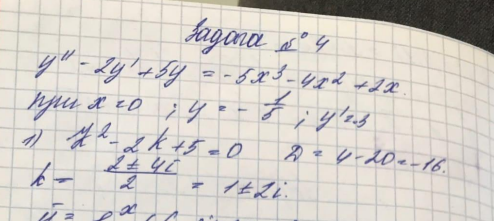 Задача № 4
y'' - 2y' + 5y = -5x³ - 4x² + 2x.
при x=0 ; y = -1/5 ; y'=3
1) k² - 2k + 5 = 0 D = 4 - 20 = -16.
k = (2 ± 4i)/2 = 1 ± 2i.